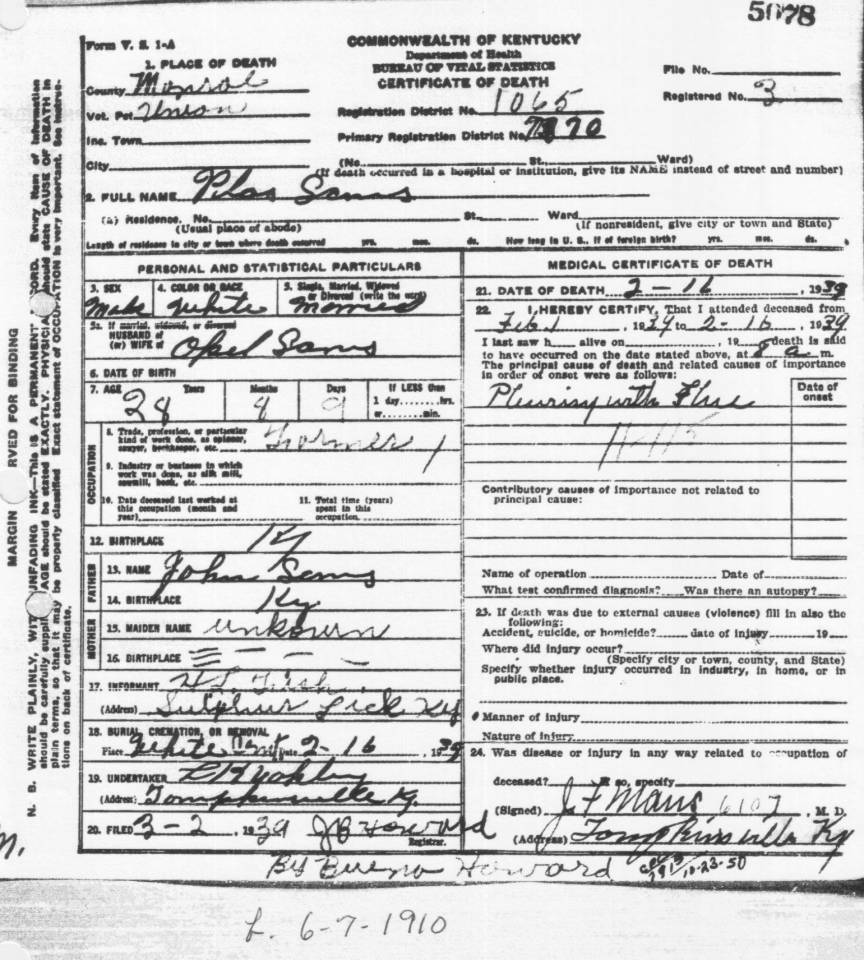 5078
Form V. S. 1-A
COMMONWEALTH OF KENTUCKY
Department of Health
BUREAU OF VITAL STATISTICS
CERTIFICATE OF DEATH
File No.
Registered No. 3
1. PLACE OF DEATH
County Monroe
Vot. Pct. Union
Inc. Town
City
Registration District No. 1065
Primary Registration District No. 7870
(No. St., Ward)
(If death occurred in a hospital or institution, give its NAME instead of street and number)
2. FULL NAME Plas Sams
(a) Residence. No. St., Ward
(Usual place of abode) (If nonresident, give city or town and State)
Length of residence in city or town where death occurred yrs. mos. ds. How long in U. S., if of foreign birth? yrs. mos. ds.
PERSONAL AND STATISTICAL PARTICULARS
3. SEX Male
4. COLOR OR RACE White
5. Single, Married, Widowed or Divorced (write the word) Married
5a. If married, widowed, or divorced
HUSBAND of
(or) WIFE of Opel Sams
6. DATE OF BIRTH
7. AGE Years Months Days If LESS than
28 8 9 1 day hrs.
or min.
OCCUPATION
8. Trade, profession, or particular
kind of work done, as spinner,
sawyer, bookkeeper, etc. Farmer 1
9. Industry or business in which
work was done, as silk mill,
sawmill, bank, etc.
10. Date deceased last worked at
this occupation (month and
year)
11. Total time (years)
spent in this
occupation.
12. BIRTHPLACE Ky
FATHER
13. NAME John Sams
14. BIRTHPLACE Ky
MOTHER
15. MAIDEN NAME unkown
16. BIRTHPLACE
17. INFORMANT
(Address) Sulphur Lick Ky
18. BURIAL, CREMATION, OR REMOVAL
Place White Date 2-16, 1939
19. UNDERTAKER
(Address) Tompkinsville Ky.
20. FILED 3-2, 1939 J B Howard
Registrar.
By Buena Howard
MEDICAL CERTIFICATE OF DEATH
21. DATE OF DEATH 2-16, 1939
22. I HEREBY CERTIFY, That I attended deceased from
Feb. 1, 1939 to 2-16, 1939
I last saw h alive on , 19 death is said
to have occurred on the date stated above, at 8 a m.
The principal cause of death and related causes of importance
in order of onset were as follows:
Date of
onset
Pleurisy with Flue
Contributory causes of importance not related to
principal cause:
Name of operation Date of
What test confirmed diagnosis? Was there an autopsy?
23. If death was due to external causes (violence) fill in also the
following:
Accident, suicide, or homicide? date of injury 19
Where did injury occur?
(Specify city or town, county, and State)
Specify whether injury occurred in industry, in home, or in
public place.
Manner of injury
Nature of injury
24. Was disease or injury in any way related to occupation of
deceased? If so, specify
(Signed) J F Marrs 6107, M. D.
(Address) Tompkinsville Ky
10-23-50
L. 6-7-1910
MARGIN RESERVED FOR BINDING
N. B. WRITE PLAINLY, WITH UNFADING INK—This IS A PERMANENT RECORD. Every item of information
should be carefully supplied. AGE should be stated EXACTLY. PHYSICIANS should state CAUSE OF DEATH in
plain terms, so that it may be properly classified. Exact statement of OCCUPATION is very important. See instruc-
tions on back of certificate.